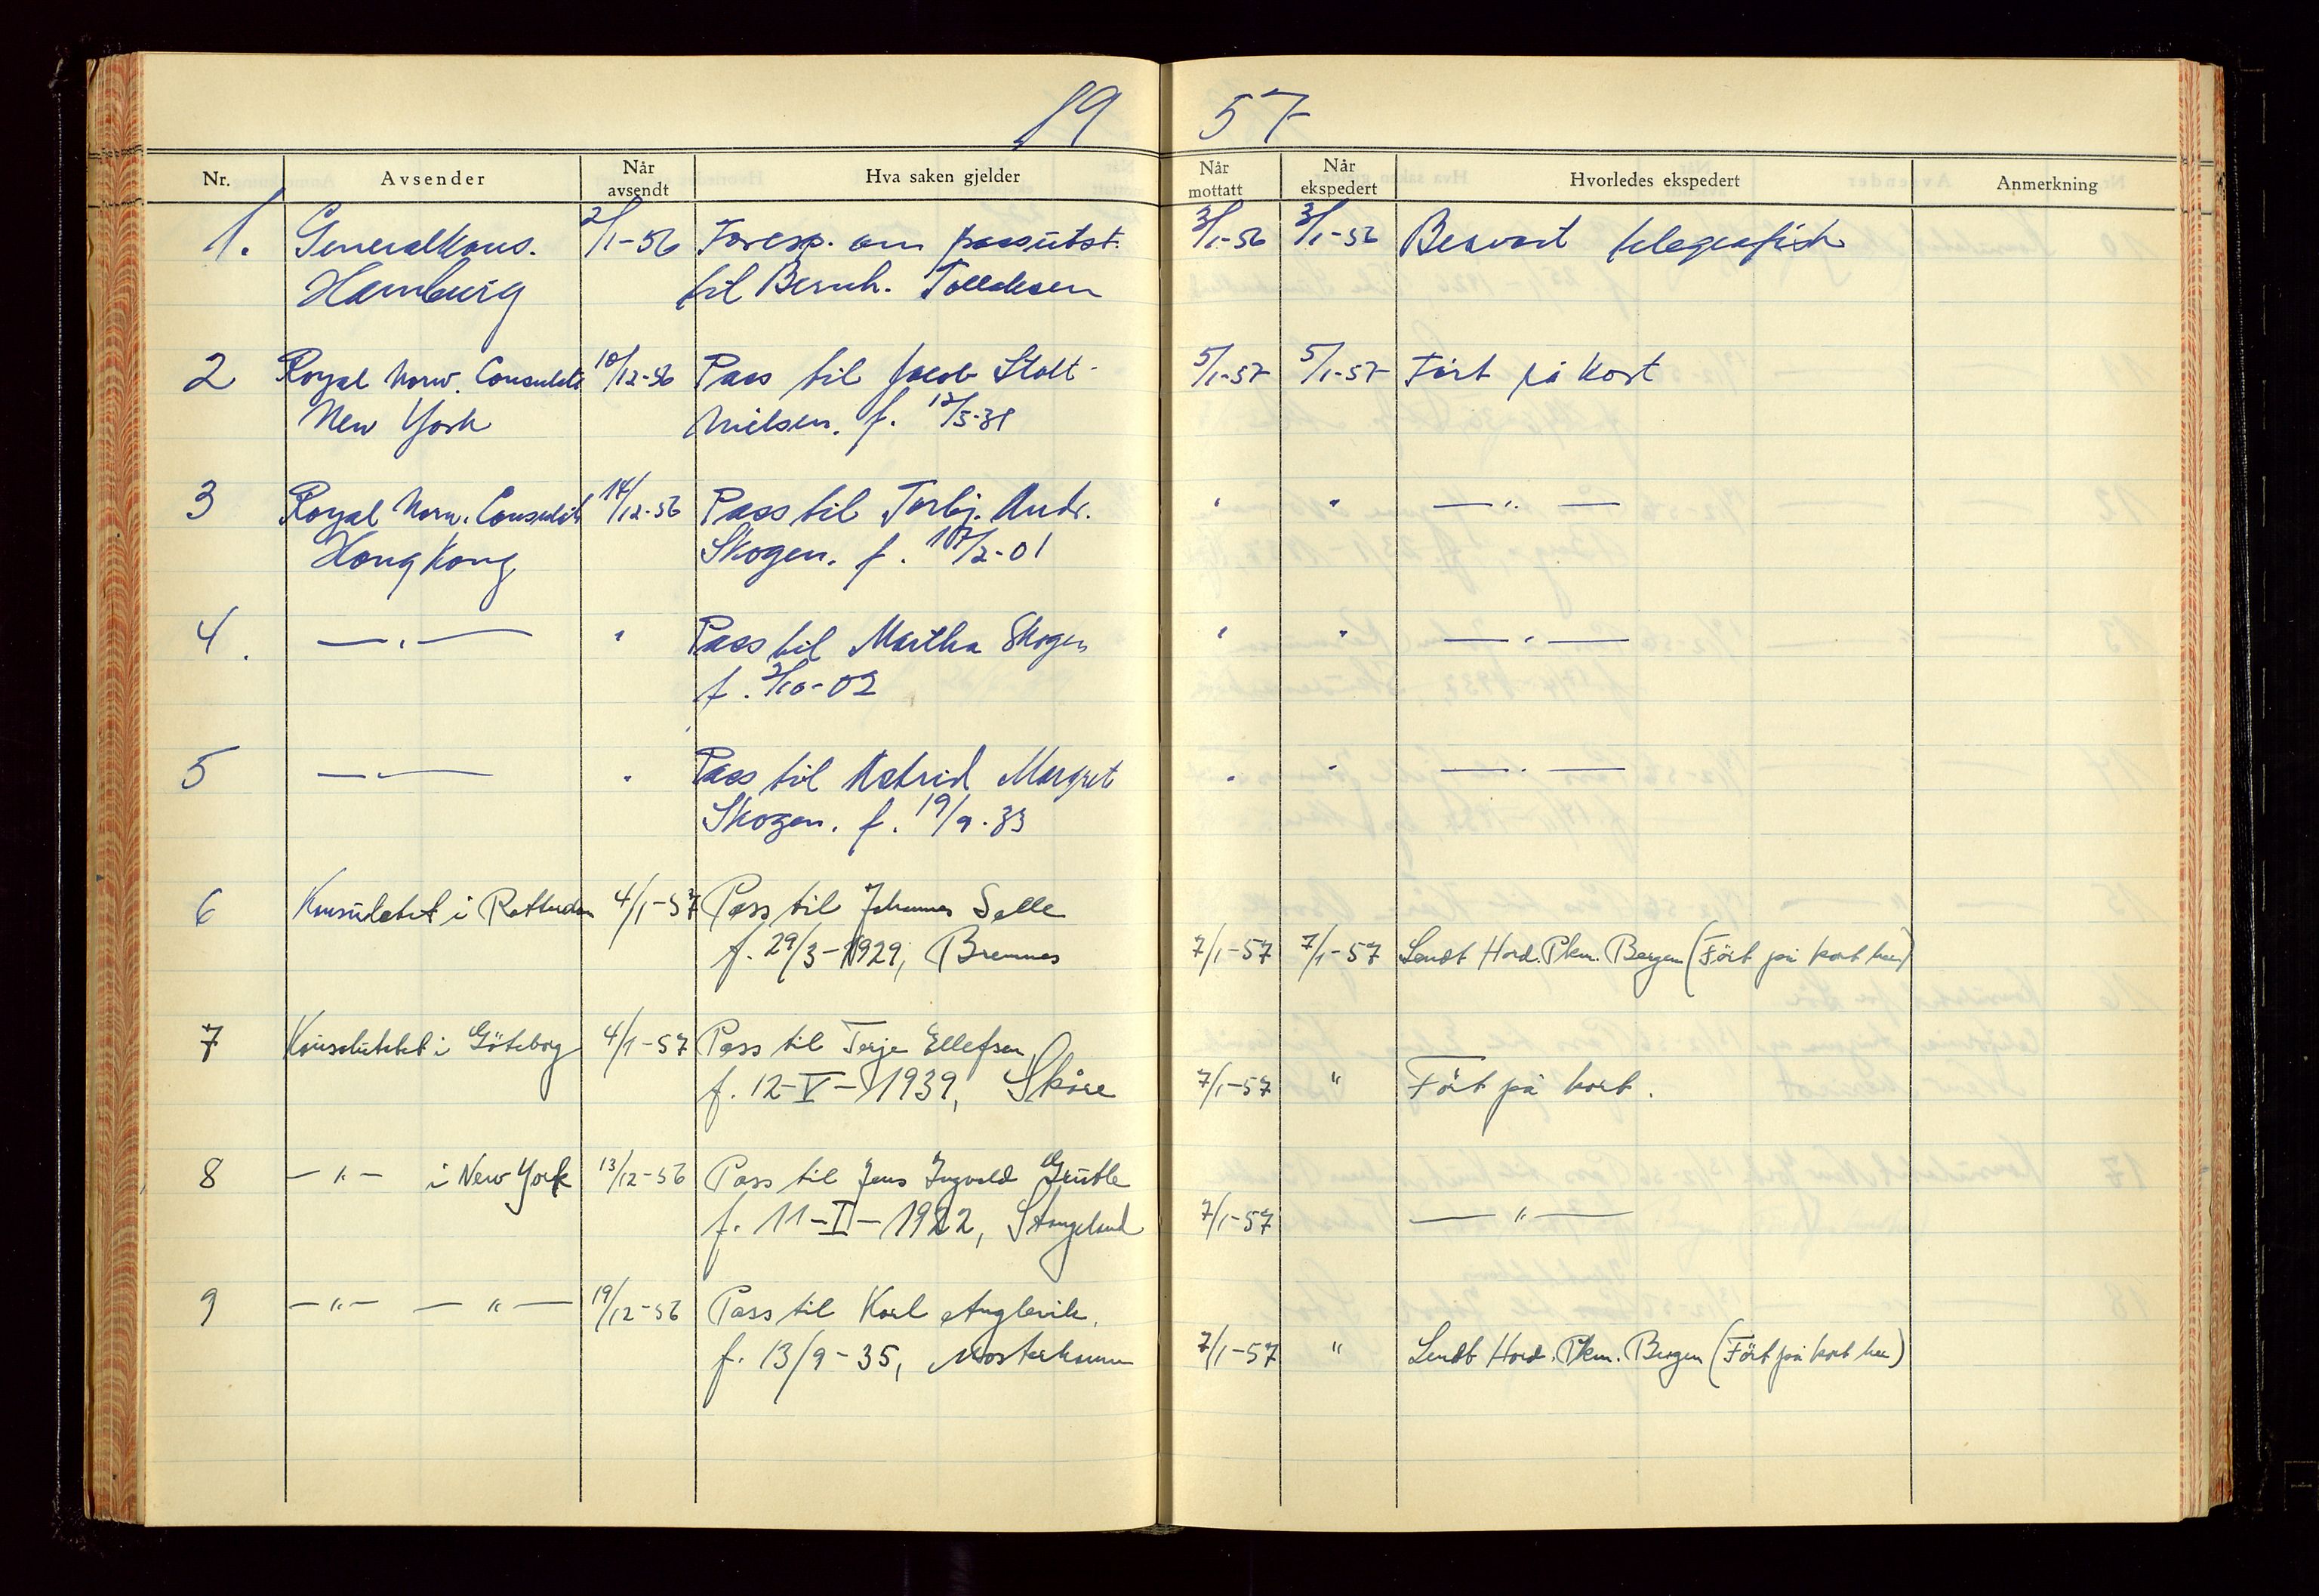 19 57
Nr. Avsender Når avsendt Hva saken gjelder Når mottatt Når ekspedert Hvorledes ekspedert Anmerkning
1. Generalkons. 2/1-56 Foresp. om passutst. 3/1-56 3/1-56 Besvart telegrafisk
Hamburg til Bernh. Tollaksen
2 Royal Norw. Consulate 10/12-56 Pass til Jacob Stolt- 5/1-57 5/1-57 Ført på kort
New York Nielsen. f. 12/5-31
3 Royal Norw. Consulate 14/12-56 Pass til Torbj. Andr. " " — " —
Hong Kong Skogen. f. 17/2-01
4. — " — " Pass til Martha Skogen " " — " —
f. 2/10-02
5 — " — " Pass til Astrid Margret " " — " —
Skogen. f. 19/9-33
6 Konsulatet i Rotterdam 4/1-57 Pass til Johannes Selle
f. 29/3-1929, Bremnes 7/1-57 7/1-57 Sendt Hord. Pkm. Bergen (Ført på kort her)
7 Konsulatet i Göteborg 4/1-57 Pass til Terje Ellefsen
f. 12-V-1939, Skåre 7/1-57 " Ført på kort.
8 — " — i New York 13/12-56 Pass til Jens Ingvald Grutle
f. 11-I-1922, Stangeland 7/1-57 — " —
9 — " — — " — 19/12-56 Pass til Karl
f. 13/9-35, Mosterhamn 7/1-57 " Sendt Hord. Pkm. Bergen (Ført på kort her)